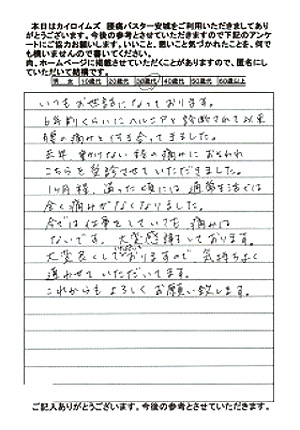 本日はカイロイムズ 腰痛バスター安城をご利用いただきましてあり
がとうございます。今後の参考とさせていただきますので下記のアンケ
ートにご協力お願いします。いいこと、悪いこと気づかれたことを、何で
も構いませんので書いてください。
尚、ホームページに掲載させていただくことがありますので、匿名にし
ていただいて結構です。
男 女 10歳代 20歳代 30歳代 40歳代 50歳代 60歳以上
いつもお世話になっております。
6年前くらいにヘルニアと診断されて以来
腰の痛みと付き合ってきました。
去年、動けない程の痛みにおそわれ
こちらを受診させていただきました。
1ヶ月程、通った頃には通常生活では
全く痛みがなくなりました。
今では仕事をしていても痛みは
ないです。大変感謝しております。
大変良くして下さりますので気持ちよく
通わせていただいてます。
これからもよろしくお願い致します。
ご記入ありがとうございます。今後の参考とさせていただきます。